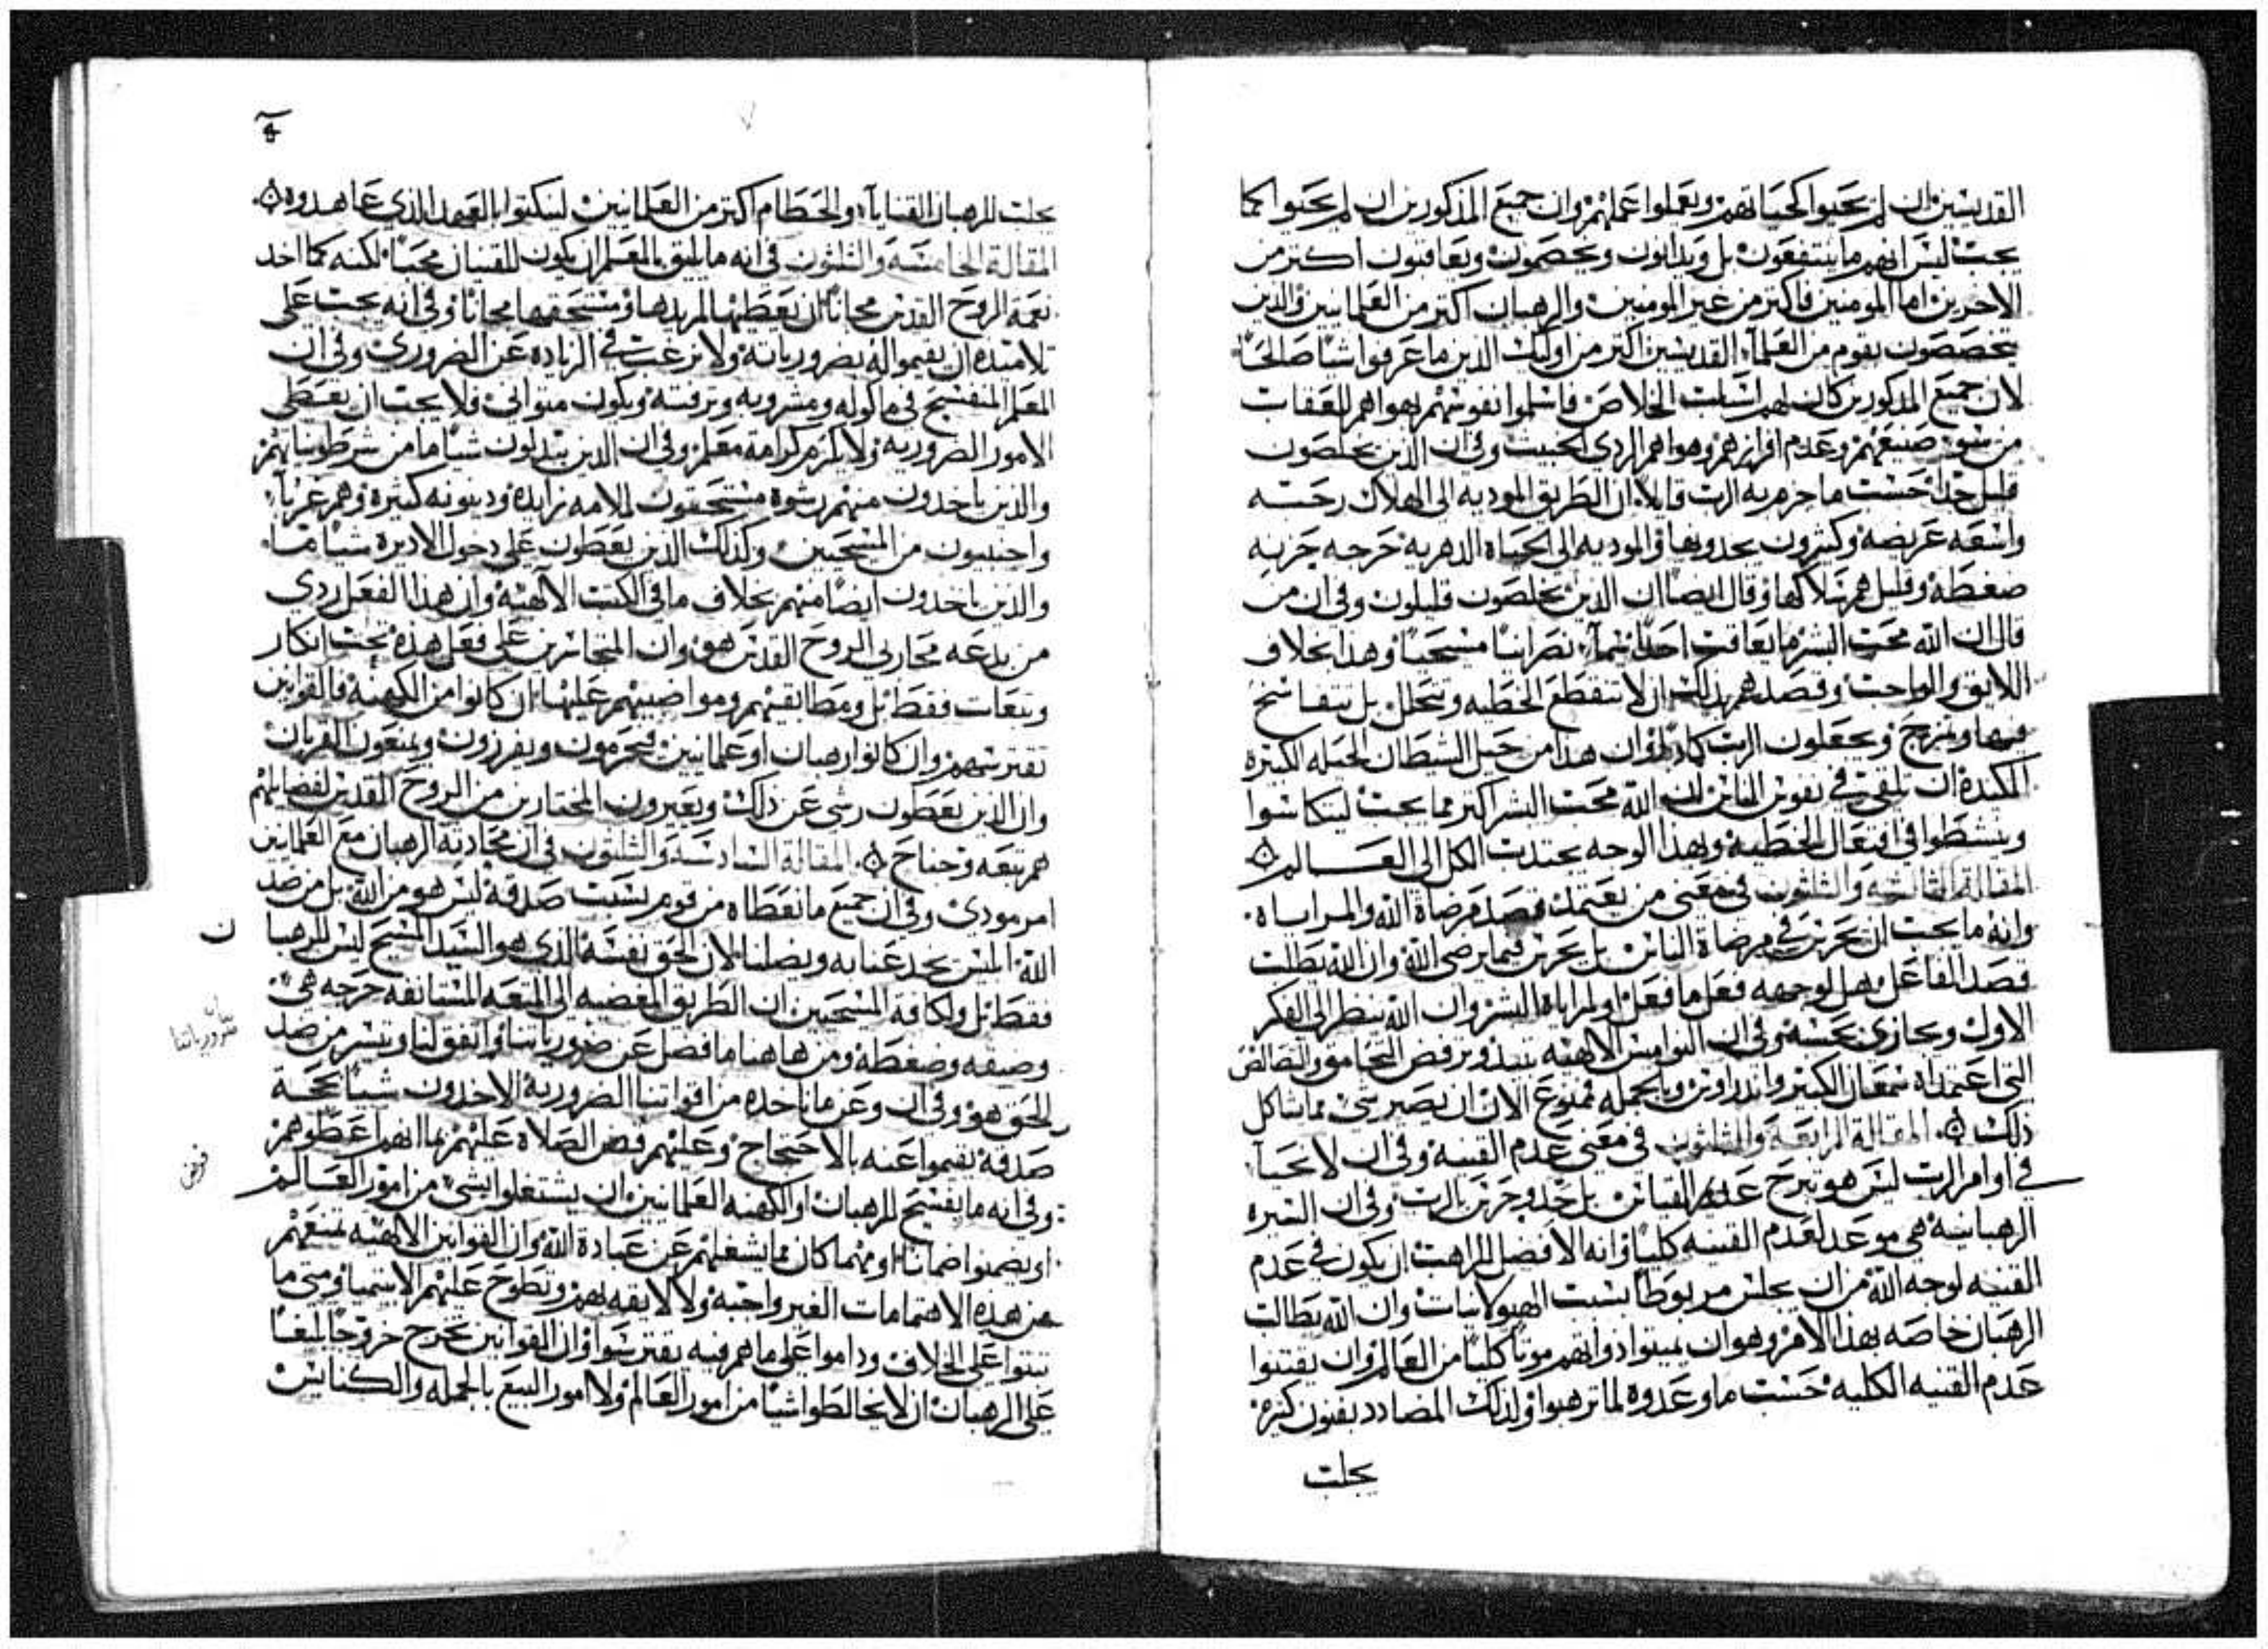 القديسين ان لم يحيوا كحياتهم ويعملوا عملهم وان جميع المذكورين ان لم يحيوا كما
يجب ليس انهم ما ينتفعون بل ويدانون ويخصمون ويعاقبون اكتر من
الاخرين اما المومنين فاكتر من غير المومنين والرهبان اكتر من العلمانيين والدين
يختصون بقوم من العلمآء القديسين اكتر من اوليك الدين ما عرفوا شيا صالحًا
لان جميع المدكورين كان لهم اسباب الخلاص فاسلموا نفوسهم بهواهم للعقاب
من سو صنيعهم وعدم افرازهم وهواهم الردي الخبيت وفي ان الدين يخلصون
قليل جدًا حسب ما جزم به الرب قايلا ان الطريق الموديه الى الهلاك رحبه
واسعه عريضه وكتيرون يجدونها والموديه الى الحياه الدهريه حرجه حزنه
ضغطه وقليل هم سلاكها وقال ايضا ان الدين يخلصون قليلون وفي ان من
قال ان الله محب البشر ما يعاقب احدًا سيمآ نصرانيًا مسيحيًا وهدا بخلاف
اللايق والواجب وقصدهم بدلك ان لا تنقطع الخطيه وتتحلل بل تتفاسخ
فيها وتزبح ويجعلون الرب كادبًا وان هدا من حيل الشيطان الحيله الكتيره
المكيده ان تلقي في نفوس الناس ان الله محب البشر اكتر مما يجب ليتكاسوا
وينشطوا في افتعال الخطيه وبهدا الوجه يجتدب الكل الى العالم
المقالة التالته والتلتون في معنى من يعتمد قصد مرضاة الله والمراياه
وانه ما يجب ان نحزن في مرضاة الناس بل نحزن فيما يرضي الله وان الله يطالب
قصد الفاعل هل لوجهه فعل ما فعل او لمراياة البشر وان الله ينظر الى الفكر
الاول ويجازي بحسبه وفي ان النواميس الالهيه تنبد وترفض التحامق والتظالص
التي اعتمداه سمعان الكبير واندراوس وبالجمله ممنوع الان ان يصير شي مما شاكل
دلك المقالة الرابعة والتلتون في معنى عدم القنيه وفي ان لا نحيا
في اوامر الرب ليس هو تبرح عدم القياس بل جد وحرص بالرب وفي ان السيره
الرهبانيه هي موعد لعدم القنيه كليًا وانه الافضل للراهب ان يكون في عدم
القنيه لوجه الله من ان يجلس مربوطًا بسبب الهيولانيات وان الله يطالب
الرهبان خاصه بهدا الامر وهو ان يميتوا دواتهم موتًا كليًا من العالم وان يقتنوا
عدم القنيه الكليه حسب ما وعدوه لما ترهبوا ولدلك المضادد بفنون كتيره
يجلب
يجلب للرهبان القنايآء والحطام اكتر من العلمانيين لينكتوا بالعهد الدي عاهدوه
المقالة الخامسة والتلتون في انه ما يليق بالمعلم ان يكون للقنيان محبًا لكنه كما اخد
نعمة الروح القدس مجانًا ان يعطيها لمريدها ومستحقيها مجانًا وفي انه يجب على
تلامتده ان يقيموا له بضرورياته ولا يرغب في الزياده عن الضروري وفي ان
المعلم المتفسح في ماكوله ومشروبه وترفته ويكون متواني فلا يجب ان يعطى
الامور الضروريه ولا يكرم كرامة معلم وفي ان الدين يبدلون شيا ما من شرطونياتهم
والدين ياخدون منهم رشوة مستحقون لملامه زايدة ودينونه كتيرة وهم غربآء
واجنبيون من المسيحيين وكدلك الدين يعطون على دخول الاديره شيا ما
والدين ياخدون ايضًا منهم بخلاف ما في الكتب الالهيه وان هدا الفعل ردي
من بدعه محاربي الروح القدس هو وان المتجاسرين على فعل هده تحت انكار
وتبعات فقط بل ومطابقتهم ومواضبتهم عليها ان كانوا من الكهنة فالقوانين
تقترسهم وان كانوا رهبان او علمانيين فيحرمون ويفرزون ويمنعون القربان
وان الدين يعطون رشى عن دلك ويعيرون المختارين من الروح القدس لفضايلهم
هم تبعه وجناح المقالة السادسة والتلتون في ان محادتة الرهبان مع العلمانيين
امر مودي وفي ان جميع ما نعطاه من قوم بسبب صدقة ليس هو من الله بل من ضد
الله ابليس يجدعنا به ويضلنا لان الحق نفسه الدي هو السيد المسيح ليس للرهبا ن
فقط بل ولكافة المسيحيين ان الطريق المفضيه الى المتعه المستانفه حرجه هي
وضيقه وضغطه ومن هاهنا ما فضل عن ضرورياتنا واتفق لنا وتيسر من ضد
الحق هو وفي ان وعن ما ناخده من اقواتنا الضروريه الاخدون شيا بحجة
صدقه يقيموا عنه بالاحتجاج وعليهم فرض الصلاه عليهم بما انهم اعطوهم
وفي انه ما يفسح للرهبان او الكهنه العلمانيين ان يشتغلوا بشي من امور العالم
او يضمنوا ضمانًا او مهما كان مما يشغلهم عن عبادة الله وان القوانين الالهيه تمنعهم
عن هده الاهتمامات الغير واجبه ولا لايقه بهم وتطوح عليهم الابتيميا ومتى ما
تبتوا على الخلاف وداموا على ما هم فيه يقترسوا وان القوانين تحرج حروجًا بليغًا
على الرهبان ان لا يخالطوا شيا من امور العالم ولا امور البيع بالجمله والكنايس
بيان
ضرورياتنا
فرض